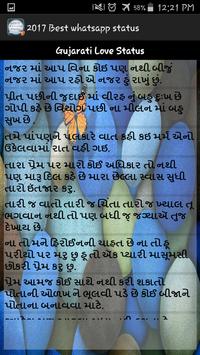 12:21 PM
2017 Best whatsapp status
Gujarati Love Status
નજર માં આપ વિના કોઇ પણ નથી બીજું
નજર માં આપ રહો એ નજર હું રાખું છું.
પ્રીત પછીની જુદાઈ માં વીરહ નું બહુ દુઃખ છે
ગોપી કહે છે વિયોગ પછી ના મીલન માં બહુ
સુખ છે
તમે પાંપણને પલકારે કઇ વાત કહી ગયા,
કઇ મર્મ એનો
ઉકેલવામાં રાત વહી ગઇ.
તારા પ્રેમ પર મારો કોઇ અધિકાર તો નથી
પણ મારૂ દિલ કહે છે મારા છેલ્લા શ્વાસ સુધી
તારો ઇંતજાર કરૂ.
તારી જ વાતો તારી જ ચિંતા તારી જ ખ્યાલ તૂ
ભગવાન નથી તો પણ બધી જ જગ્યાએ તુજ
દેખાય છે.
ના તો મને હિરોઈનની ચાહત છે ના તો હૂ
પરીઓ પર મરૂ છું હૂ તો એક પ્યારી માસુમસી
છોકરી પ્રેમ કરુ છુ.
પ્રેમ આમજ કોઈ સાથે નથી કરી શકાતો
પોતાની ઓળખ ને ભુલવી પડે છે કોઈ બીજાને
પોતાના બનાવવા માટે.